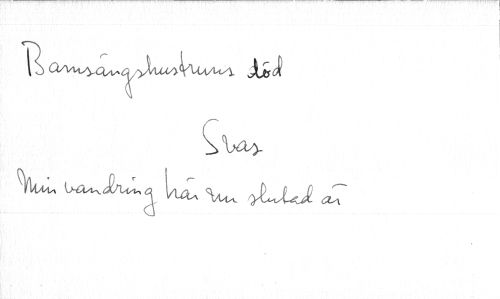 Barnsängshustruns död
Svas
Min vandring här nu slutad är